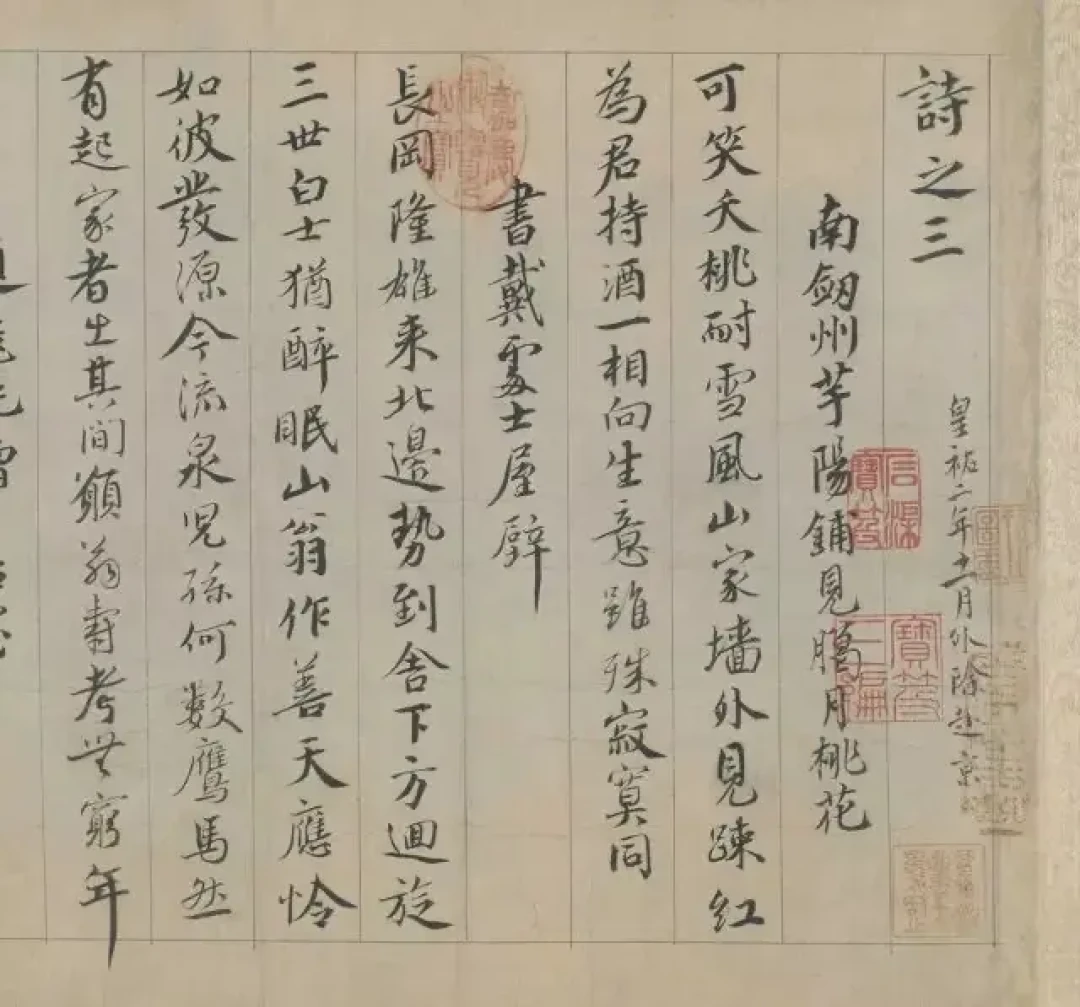 詩之三
皇祐二年十一月外除赴京
南劔州芋陽鋪見臘月桃花
可笑夭桃耐雪風山家墻外見踈紅
為君持酒一相向生意雖殊寂寞同
書戴處士屋壁
長岡隆雄来北邉勢到舍下方迴旋
三世白士猶醉眠山翁作善天應怜
如彼發源今流泉児孫何數鷹馬然
有起家者出其間願翁壽考無窮年